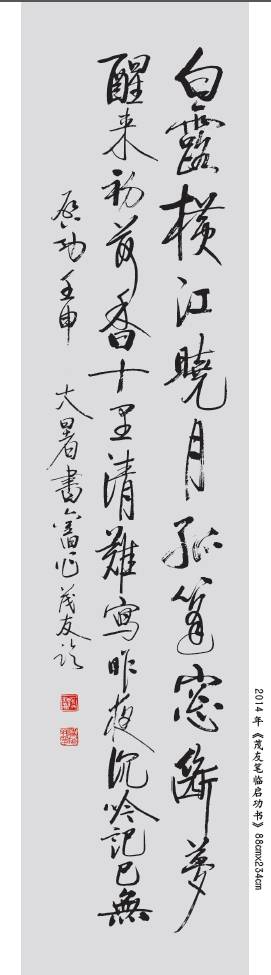 白露横江曉月孤篷窗斷夢
醒来初荷香十里清難寫昨夜沉吟記已無
启功壬申大暑書舊作茂友临
2014 年《茂友笔临启功书》88cmx234cm